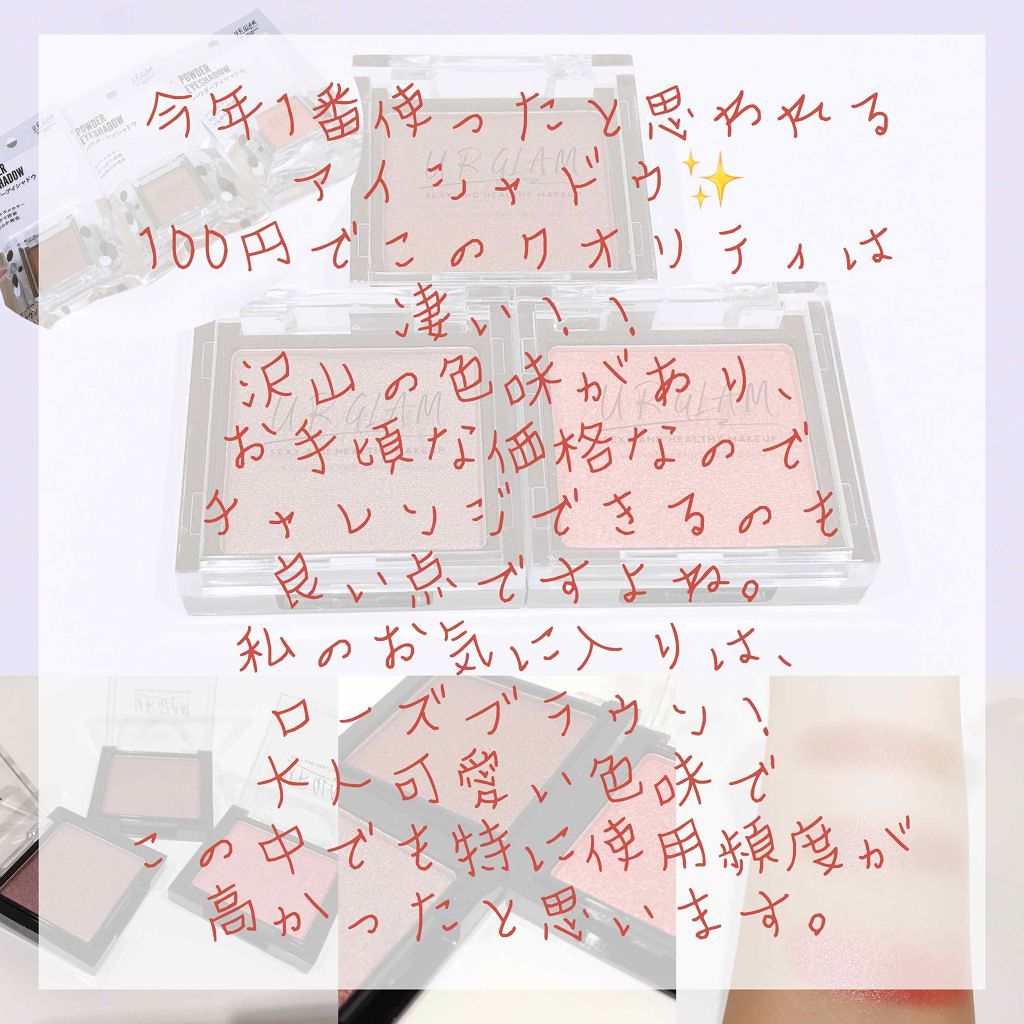 今年1番使ったと思われる
アイシャドウ✨
100円でこのクオリティは
凄い！！
沢山の色味があり、
お手頃な価格なので
チャレンジできるのも
良い点ですよね。
私のお気に入りは、
ローズブラウン！
大人可愛い色味で
この中でも特に使用頻度が
高かったと思います。
UR GLAM
POWDER
EYESHADOW
パウダーアイシャドウ
UR GLAM
POWDER
EYESHADOW
パウダーアイシャドウ
UR GLAM
UR GLAM
UR GLAM